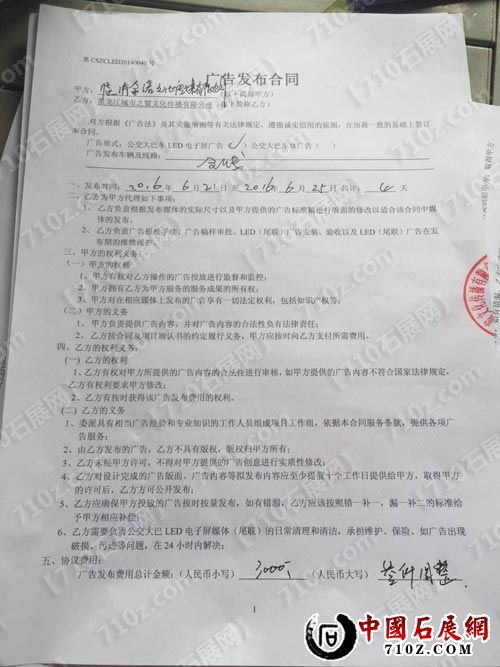 黑 CSZCLED20140040 号
广告发布合同
甲方：
（以下简称甲方）
乙方：黑龙江城市之窗文化传播有限公司（以下简称乙方）
双方根据《广告法》及其实施细则等有关法律规定，遵循诚实信用的原则，在协商一致的基础上签订
本合同。
广告形式：公交大巴车 LED 电子屏广告（✓）公交大巴车体广告（ ）
广告发布车辆及线路：
一、发布时间：2016 年 6 月 21 日至 2016 年 6 月 25 日 共计：4 天
二、乙方为甲方代理如下事项：
1、乙方负责根据发布媒体的实际尺寸以及甲方提供的广告标准稿进行版面的修改以适合该合同中媒
体的发布。
2、乙方负责广告报批手续、广告稿样审批、LED（尾联）广告安装、验收以及 LED（尾联）广告在发
布期的维修维护。
三、甲方的权利义务：
（一）甲方的权利
1、甲方有权对乙方操作的广告投放进行监督和监控；
2、甲方拥有乙方为甲方服务的服务成果的所有权；
3、甲方对在相应媒体上发布的广告享有一切法定权利，包括知识产权等；
（二）甲方的义务
1、甲方负责提供广告内容，并对广告内容的合法性负有法律责任；
2、乙方按合同及项目确认书的约定履行义务，甲方应按时向乙方支付所需费用。
四、乙方的权利义务：
（一）乙方的权利
1、乙方有权对甲方所提供的广告内容的合法性进行审核，如甲方提供的广告内容不符合国家法律规定，
乙方有权利要求甲方修改；
2、乙方有按时获得该广告发布费用的权利。
（二）乙方的义务
1、委派具有相当广告经验和专业知识的工作人员组成项目工作组，依据本合同服务条款，提供各项广
告服务；
2、由乙方发布的广告，乙方不具有版权，版权归甲方所有；
3、乙方未经甲方许可，不得对甲方提供的广告创意进行实质性修改；
4、乙方对设计完成的广告版面、广告内容等拟发布内容应至少提前十个工作日提供给甲方，取得甲方
的许可后，乙方方可公开发布；
5、乙方应确保甲方投放的广告按时按量发布，如有错漏，乙方应该按照错一补一，漏一补二的标准给
予甲方相应补偿；
6、乙方需要负责公交大巴 LED 电子屏媒体（尾联）的日常清理和清洁，承担维护、保险、如广告出现
破损、污迹等问题，在 24 小时内解决；
五、协议费用：
广告发布费用总计金额：（人民币小写） （人民币大写）
1
中國石展網
710Z.COM